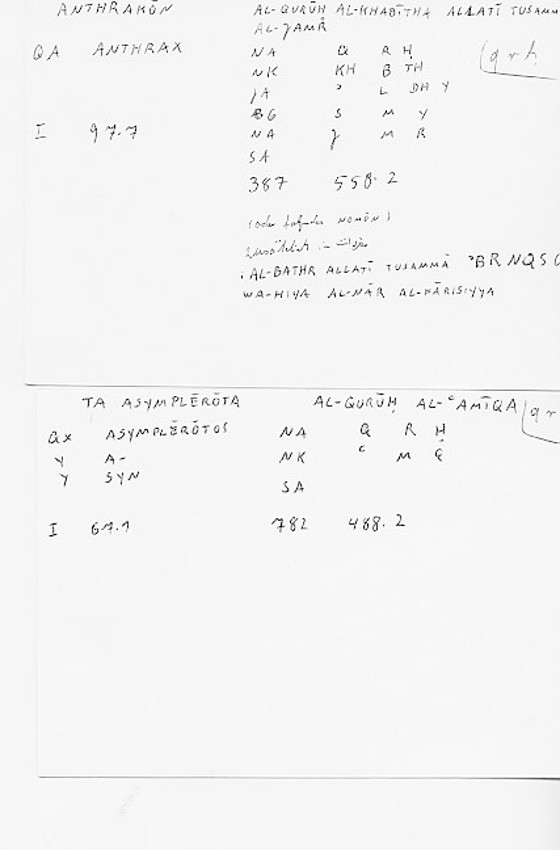 ANTHRAKŌN AL-QURŪḤ AL-KHABĪTHA ALLATĪ TUSAMM
AL-JAMR
QA ANTHRAX NA Q R Ḥ qrḥ
NK KH B TH
JA ʾ L DH Y
BG S M Y
I 97.7 NA J M R
SA
387 558.2
NOMŌN)
zusätzlich in
AL-BATHR ALLATĪ TUSAMMĀ ʾBRNQS
WA-HIYA AL-NĀR AL-FĀRISIYYA
TA ASYMPLĒRŌTA AL-QURŪḤ AL-ʿAMĪQA qr
QX ASYMPLĒRŌTOS NA Q R Ḥ
Y A- NK ʿ M Q
Y SYN
SA
I 67.1 782 488.2